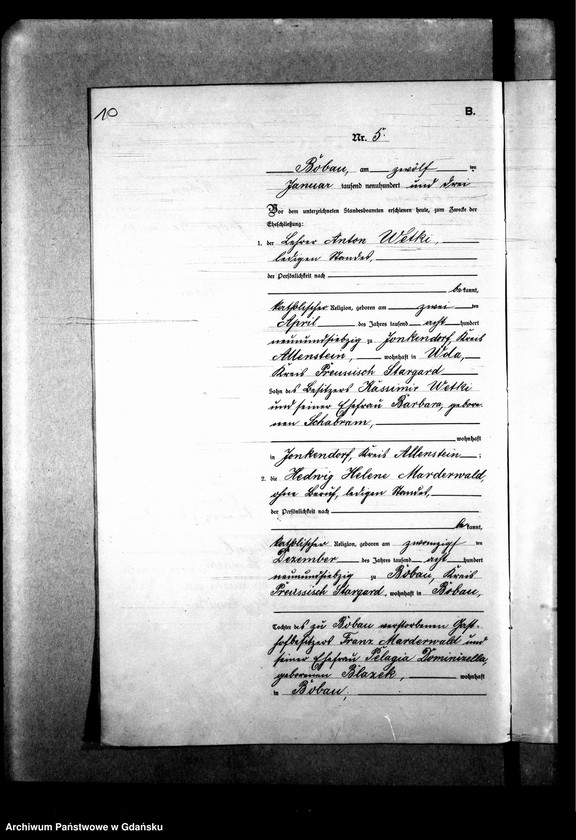 10
B.
Nr. 5.
Bobau, am zwölf ten
Januar tausend neunhundert und drei
Vor dem unterzeichneten Standesbeamten erschienen heute, zum Zwecke der
Eheschließung:
1. der Lehrer Anton Wetki,
ledigen Standes,
der Persönlichkeit nach
be kannt,
katholischer Religion, geboren am zwei ten
April des Jahres tausend acht hundert
neunundsiebzig zu Jonkendorf, Kreis
Allenstein, wohnhaft in Wda,
Kreis Preussisch Stargard
Sohn des Besitzers Kasimir Wetki
und seiner Ehefrau Barbara, gebore-
nen Schabram,
wohnhaft
in Jonkendorf, Kreis Allenstein ;
2. die Hedwig Helene Marderwald,
ohne Beruf, ledigen Standes,
der Persönlichkeit nach
be kannt,
katholischer Religion, geboren am zwanzigs ten
Dezember des Jahres tausend acht hundert
neunundsiebzig zu Bobau, Kreis
Preussisch Stargard, wohnhaft in Bobau,
Tochter des zu Bobau verstorbenen Gast-
hofbesitzers Franz Marderwald und
seiner Ehefrau Pelagia Dominizella,
geborenen Blazek, wohnhaft
in Bobau,
Archiwum Państwowe w Gdańsku